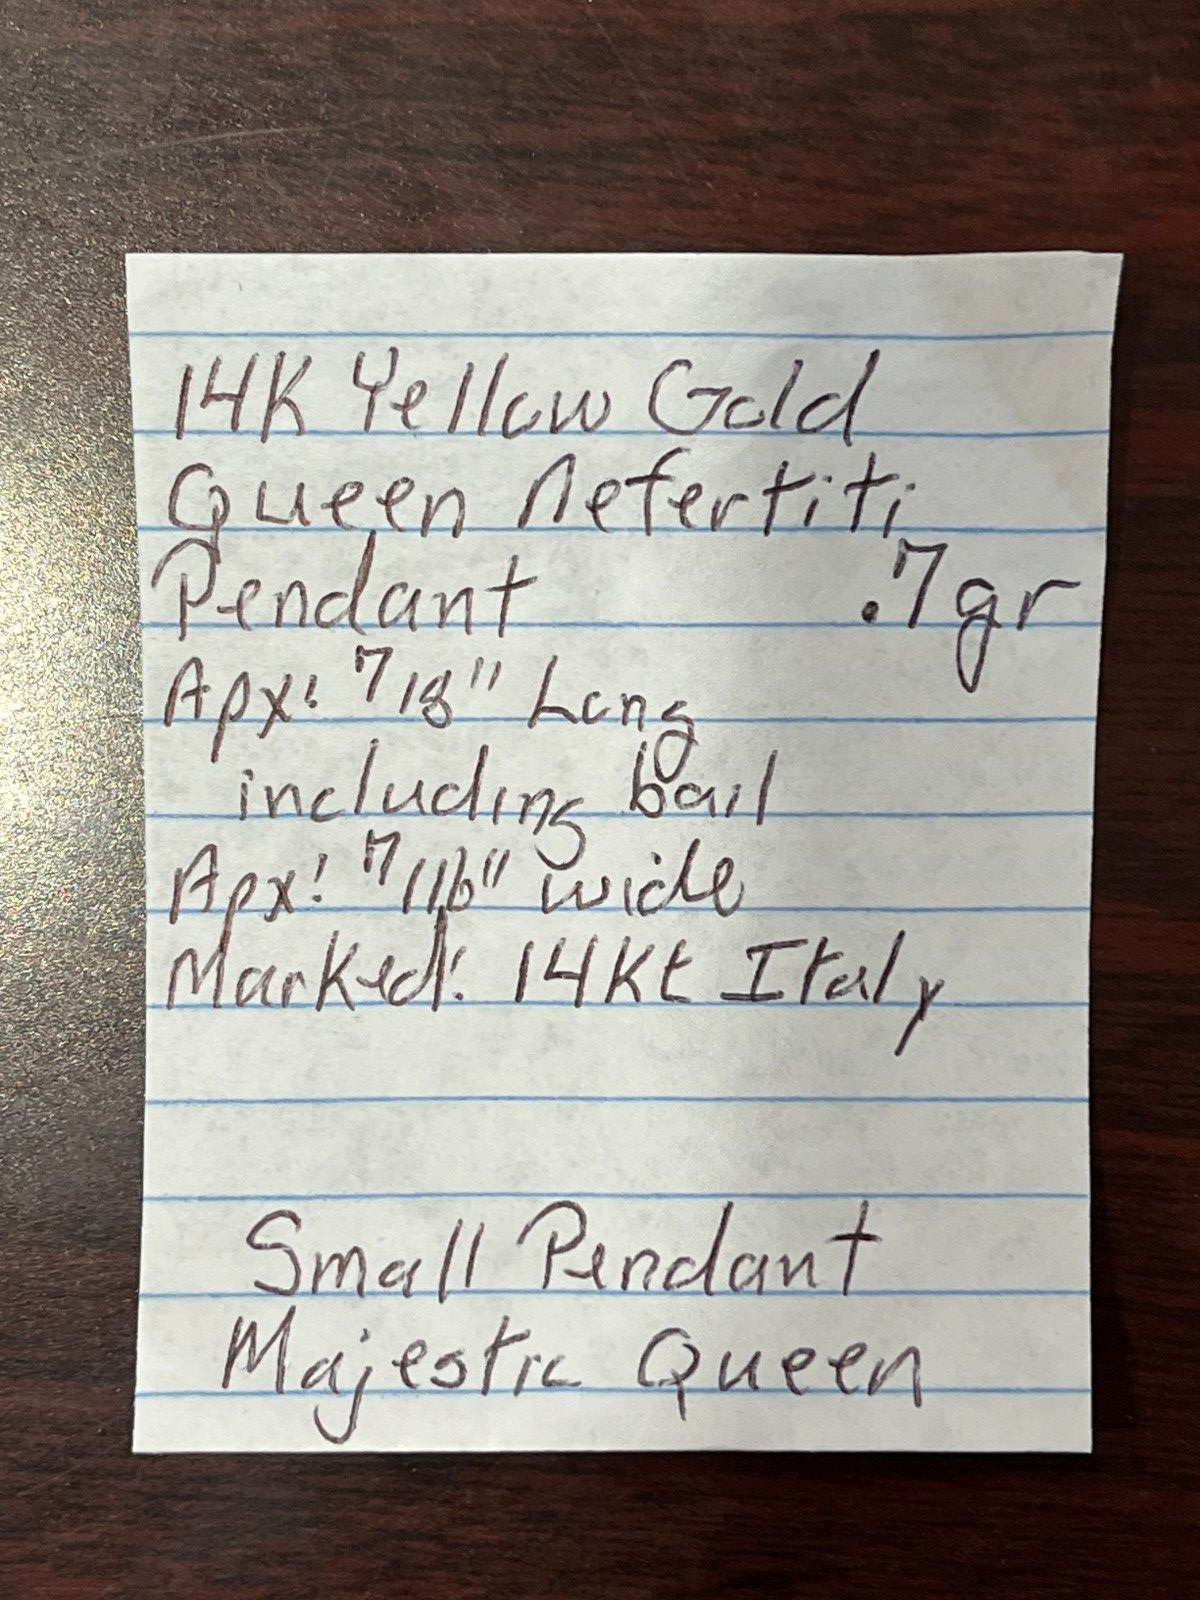 14K Yellow Gold
Queen Nefertiti
Pendant .7gr
Apx: 7/8" Long
including bail
Apx: 7/16" wide
Marked: 14Kt Italy
Small Pendant
Majestic Queen